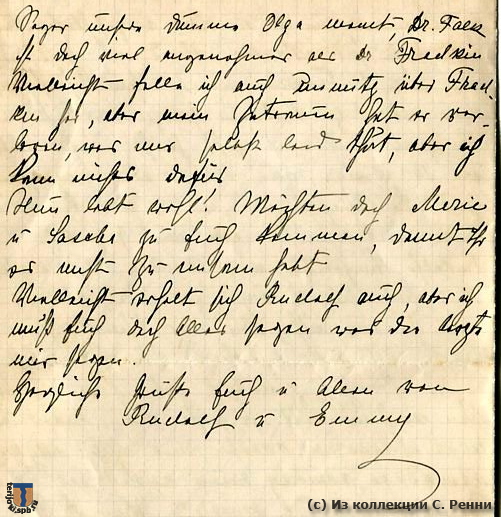 Sogar unsere dumme Olga meint, Dr. Falk
ist doch viel angenehmer als Dr Fraenkin
Vielleicht falle ich auch über Fraen-
kin her, aber mein hat er ver-
loren, was mir selbst leid thut, aber ich
kann nichts dafür
Nun lebt wohl! Möchten doch Marie
u Sascha zu Euch kommen, damit Ihr
es nicht zu einsam habt
Vielleicht erholt sich Rudolf auch, aber ich
muß Euch doch Alles sagen was die Aerzte
mir sagen.
Herzliche Grüße Euch u Allen von
Rudolf u Emmy
terijoki.spb.ru
(c) Из коллекции С. Ренни